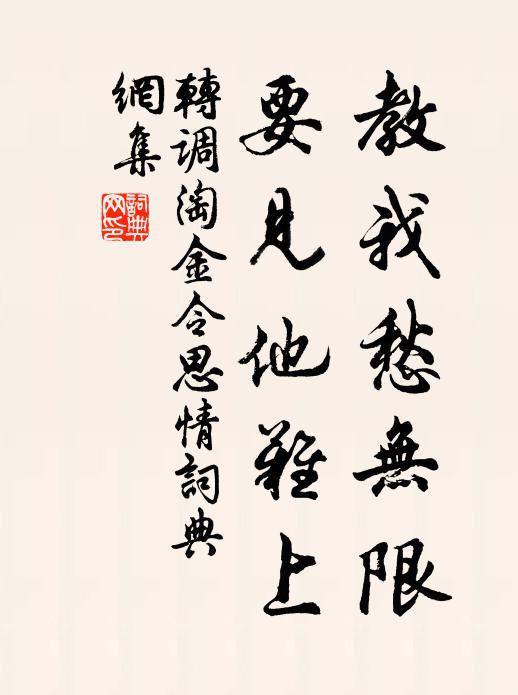 教我愁無限
要見他難上
轉調淘金令思情詞典
網集
詞典
网印